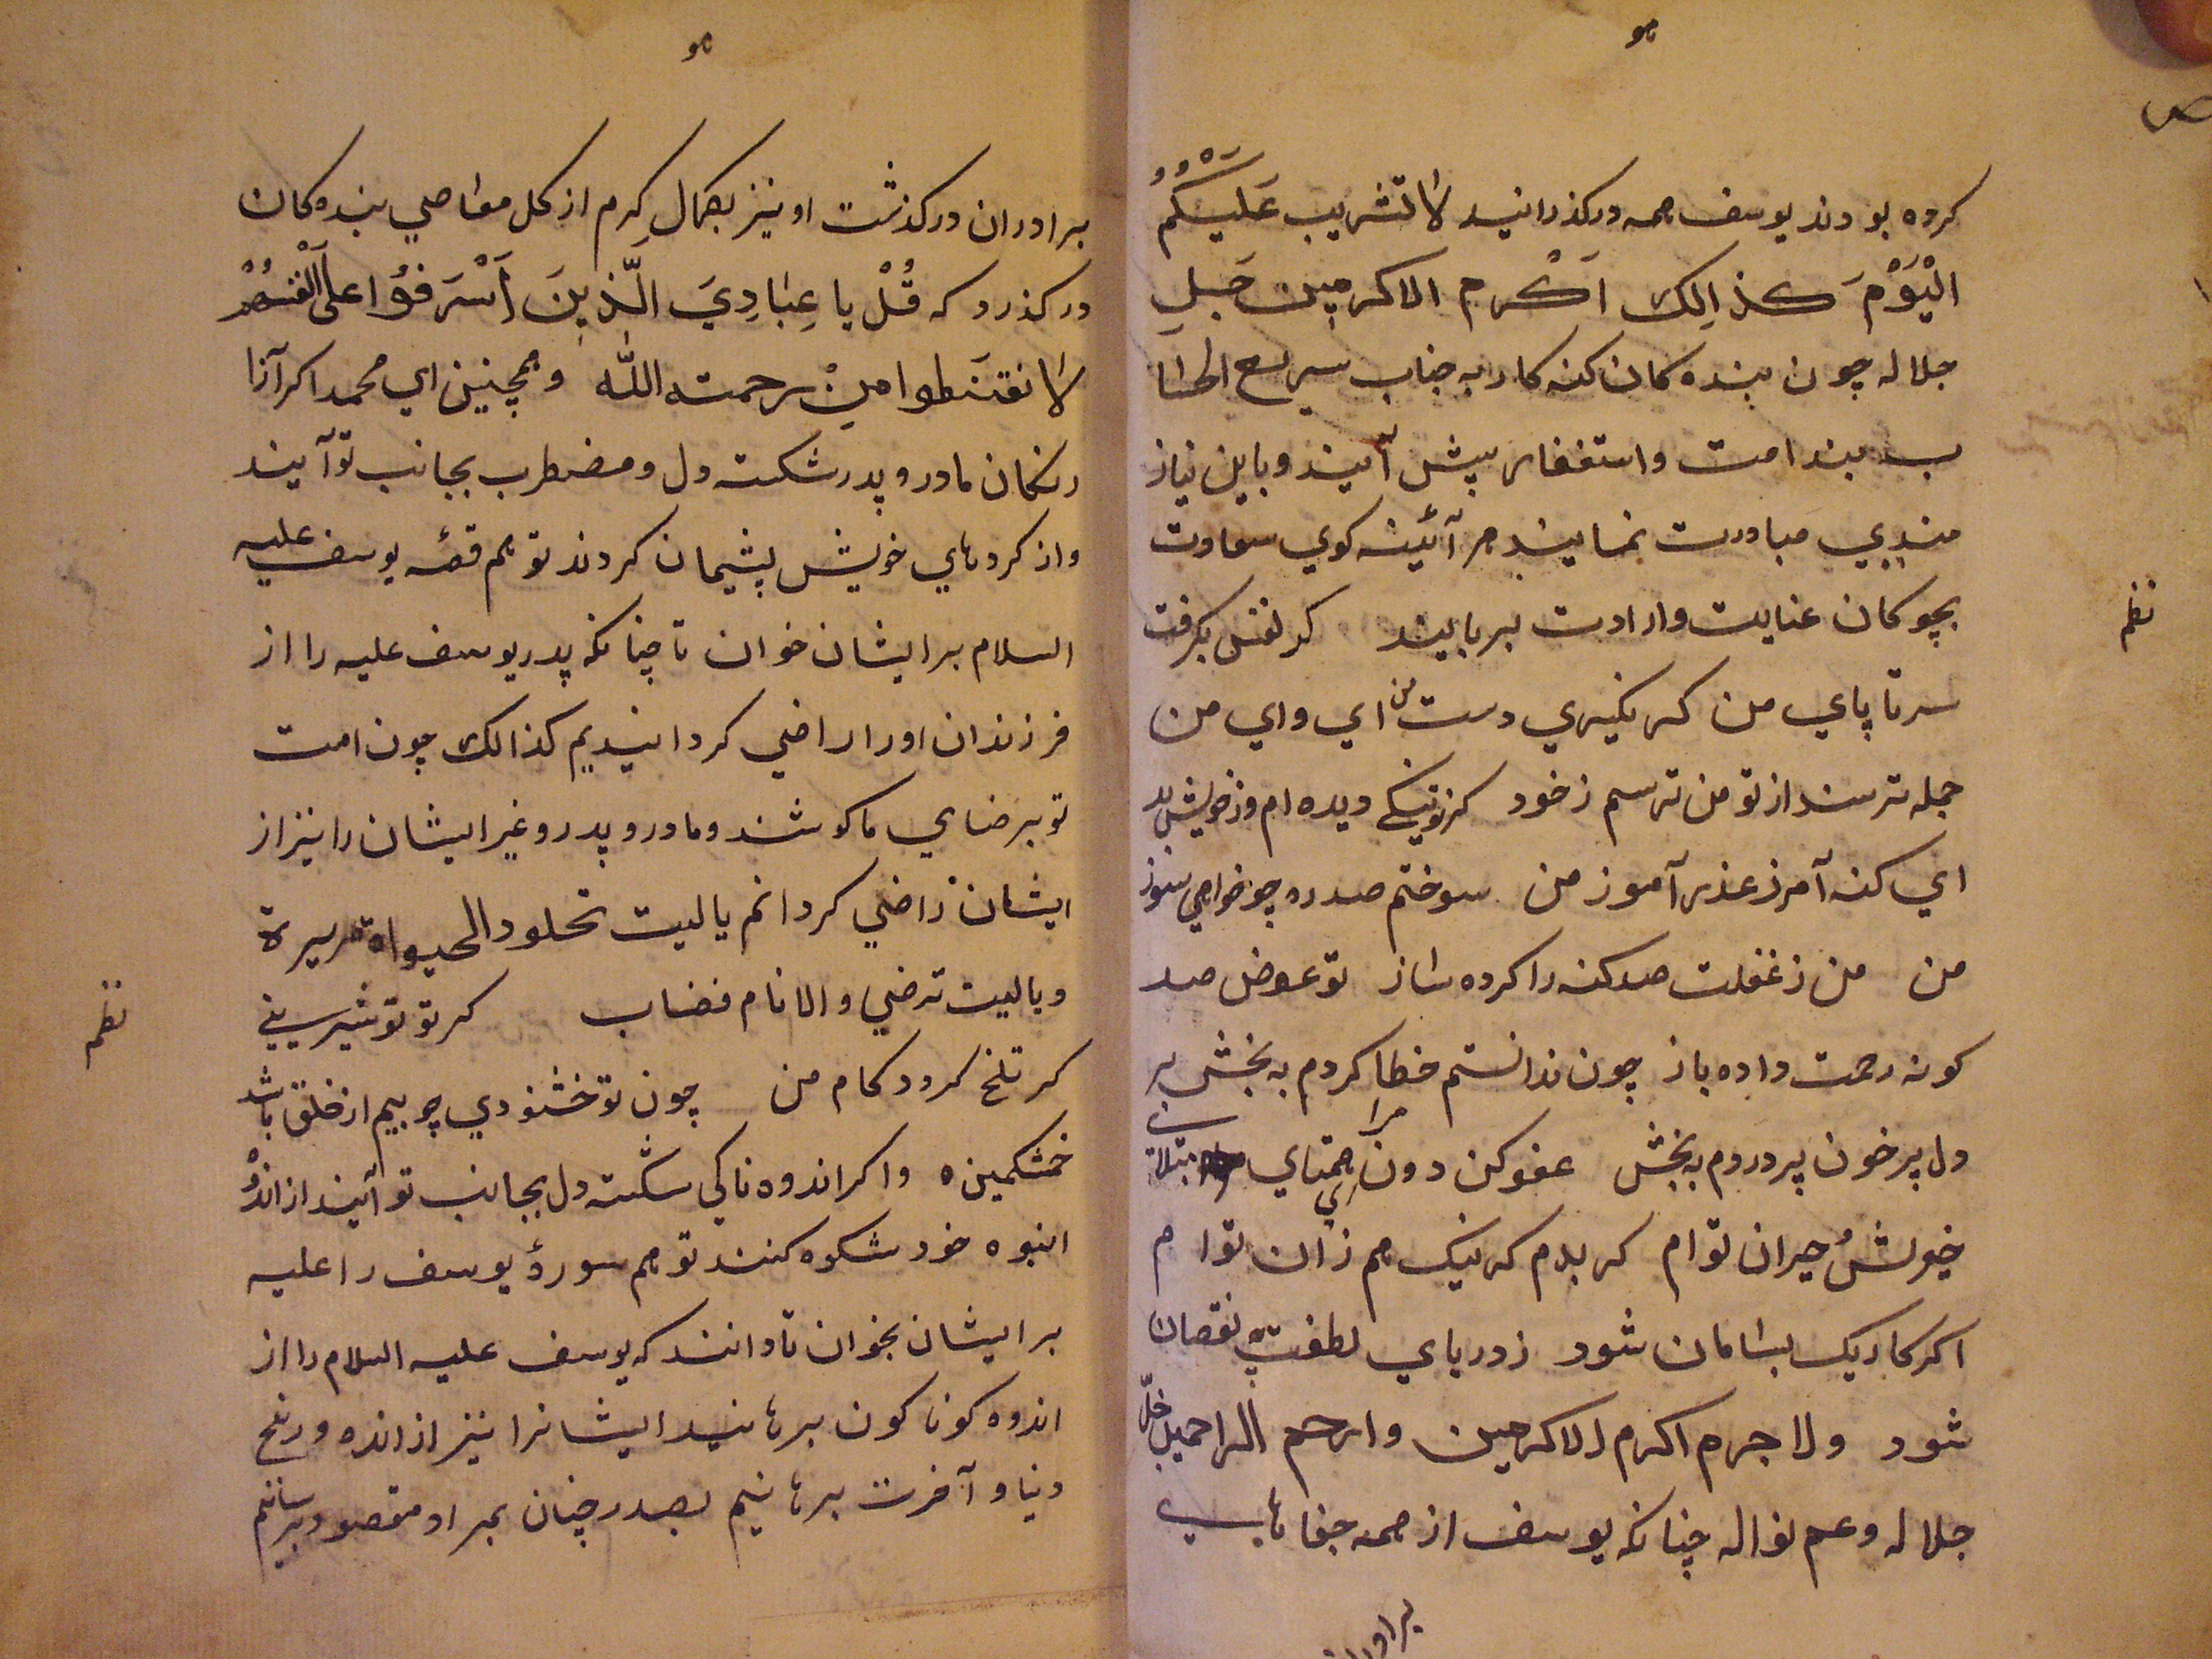 هو
کرده بودند یوسف همه درکذرانید لا تثریب عَلَیْکُمُ
الْیَوْمَ کذالِک اَکْرم الاکرمین جَلِ
جلاله چون بنده کان کنه کار به جناب سریع الحسا
ب بندامت واستغفار پیش آیند و باین نیاز
مندیي مبادرت نمایند هر آئینه کوي سعادت
بچوکان عنایت وارادت بربایند کر نفس بکرفت
نظم
سر تا پاي من کر نکیري دست من اي واي من
جمله ترسند از تو من ترسم ز خود کز تو نیکی دیده ام وز خویش بد
اي کنه آمرز عذر آموز من سوختم صد ره چو خواهي سوز
من من ز غفلت صد کنه را کرده ساز تو عوض صد
کونه رحمت داده باز چون ندانستم خطا کردم به بخش بر
دل پر خون پر دردم به بخش عفو کن دون همتیهاي مرا
خویش حیران توام کر بدم کر نیک هم زان توام
اکر کار یک بسامان شود ز دریاي لطفت چه نقصان
شود ولا جرم اکرم الاکرمین وارحم الراحمین جلّ
جلاله وعم نواله چنانکه یوسف از همه جفا هاي
برادران
هو
برادران درکذشت او نیز بکمال کرم از کل معاصي بنده کان
درکذرد که قُلْ یا عِبَادِيَ الَّذِینَ اَسْرَفُوا عَلَی اَنْفُسِهِمْ
لا تقنَطوا مِنْ رحمته الله و همچنین اي محمد اکر آزا
رنکان مادر و پدر شکسته دل و مضطرب بجانب تو آیند
واز کردهاي خویش پشیمان کردند تو هم قصه یوسف علیه
السلام بر ایشان خوان تا چنانکه پدر یوسف علیه را از
فرزندان او را راضي کردانیدیم کذالک چون امت
تو برضاي ما کوشند و مادر و پدر و غیر ایشان را نیز از
ایشان راضي کردانم یالیت تحلود الحیواة مریرة
ویالیت ترضي والانام غضاب کر تو تو شیریني
نظم
کر تلخ کردد کام من چون تو خشنودي چو بیم از خلق باشد
خشکمینه واکر اندوه ناکي شکسته دل بجانب تو آیند از اندوُ
انبوه خود شکوه کنند تو هم سورۀ یوسف را علیه
بر ایشان بخوان تا دانند که یوسف علیه السلام را از
اندوه کونا کون برهانید ایشانرا نیز از انده و رنج
دنیا و آخرت برهانیم بصدر چنان بمراد مقصود برسانیم